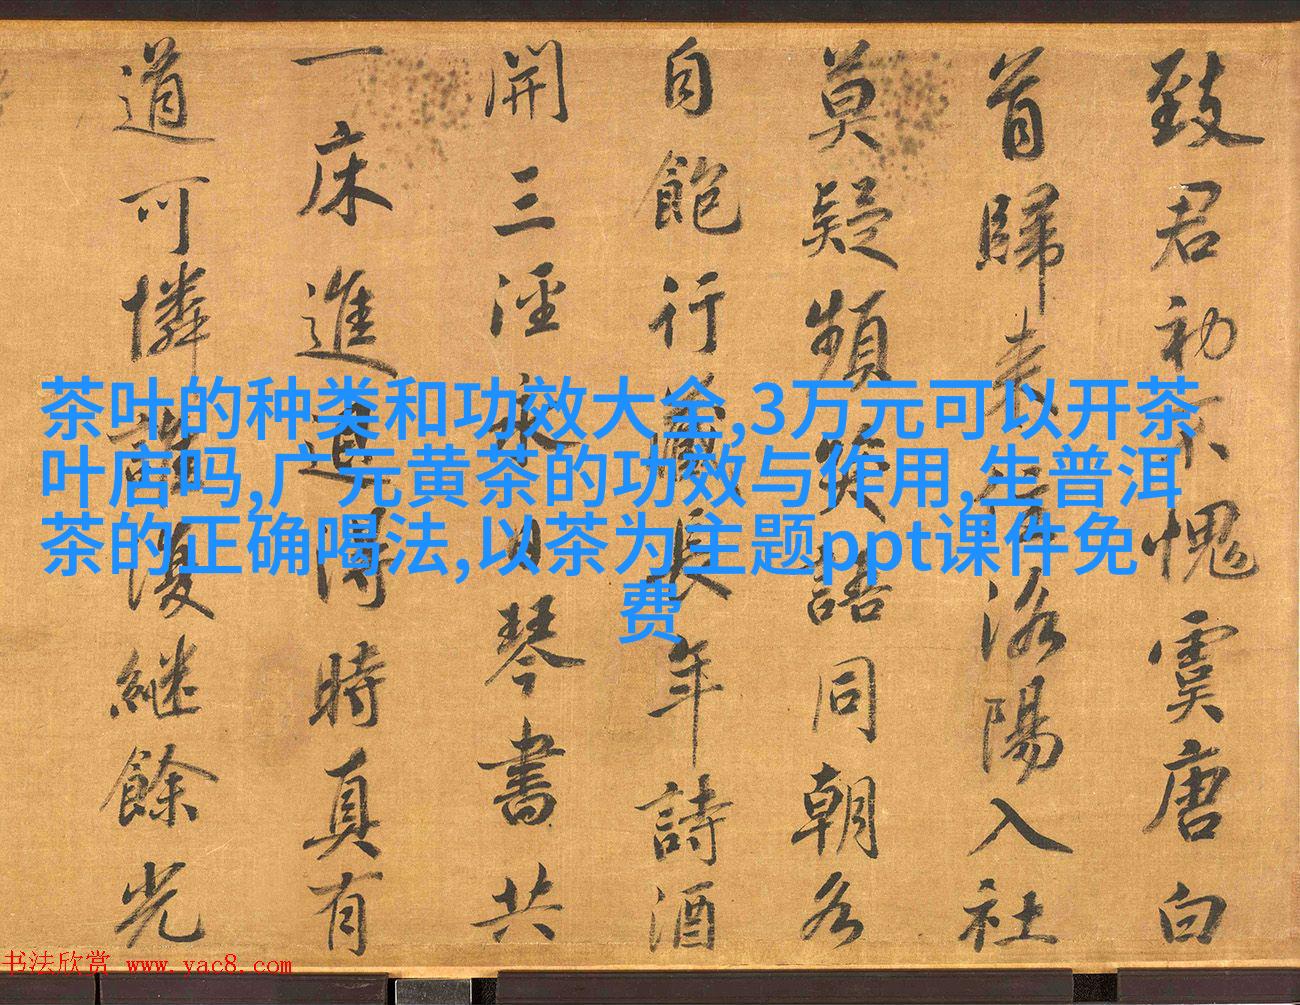 茶叶的种类和功效大全,3万元可以开茶
叶店吗,广元黄茶的功效与作用,生普洱
茶的正确喝法,以茶为主题ppt课件免
费
致君初不愧虞唐白
首歸来洛陽入社
莫疑頻笑語同朝各
自飽行藏長年詩酒
開三逕永日琴書共
一床進道得時真有
道可憐復継餘光
书法欣赏 www.yac8.com